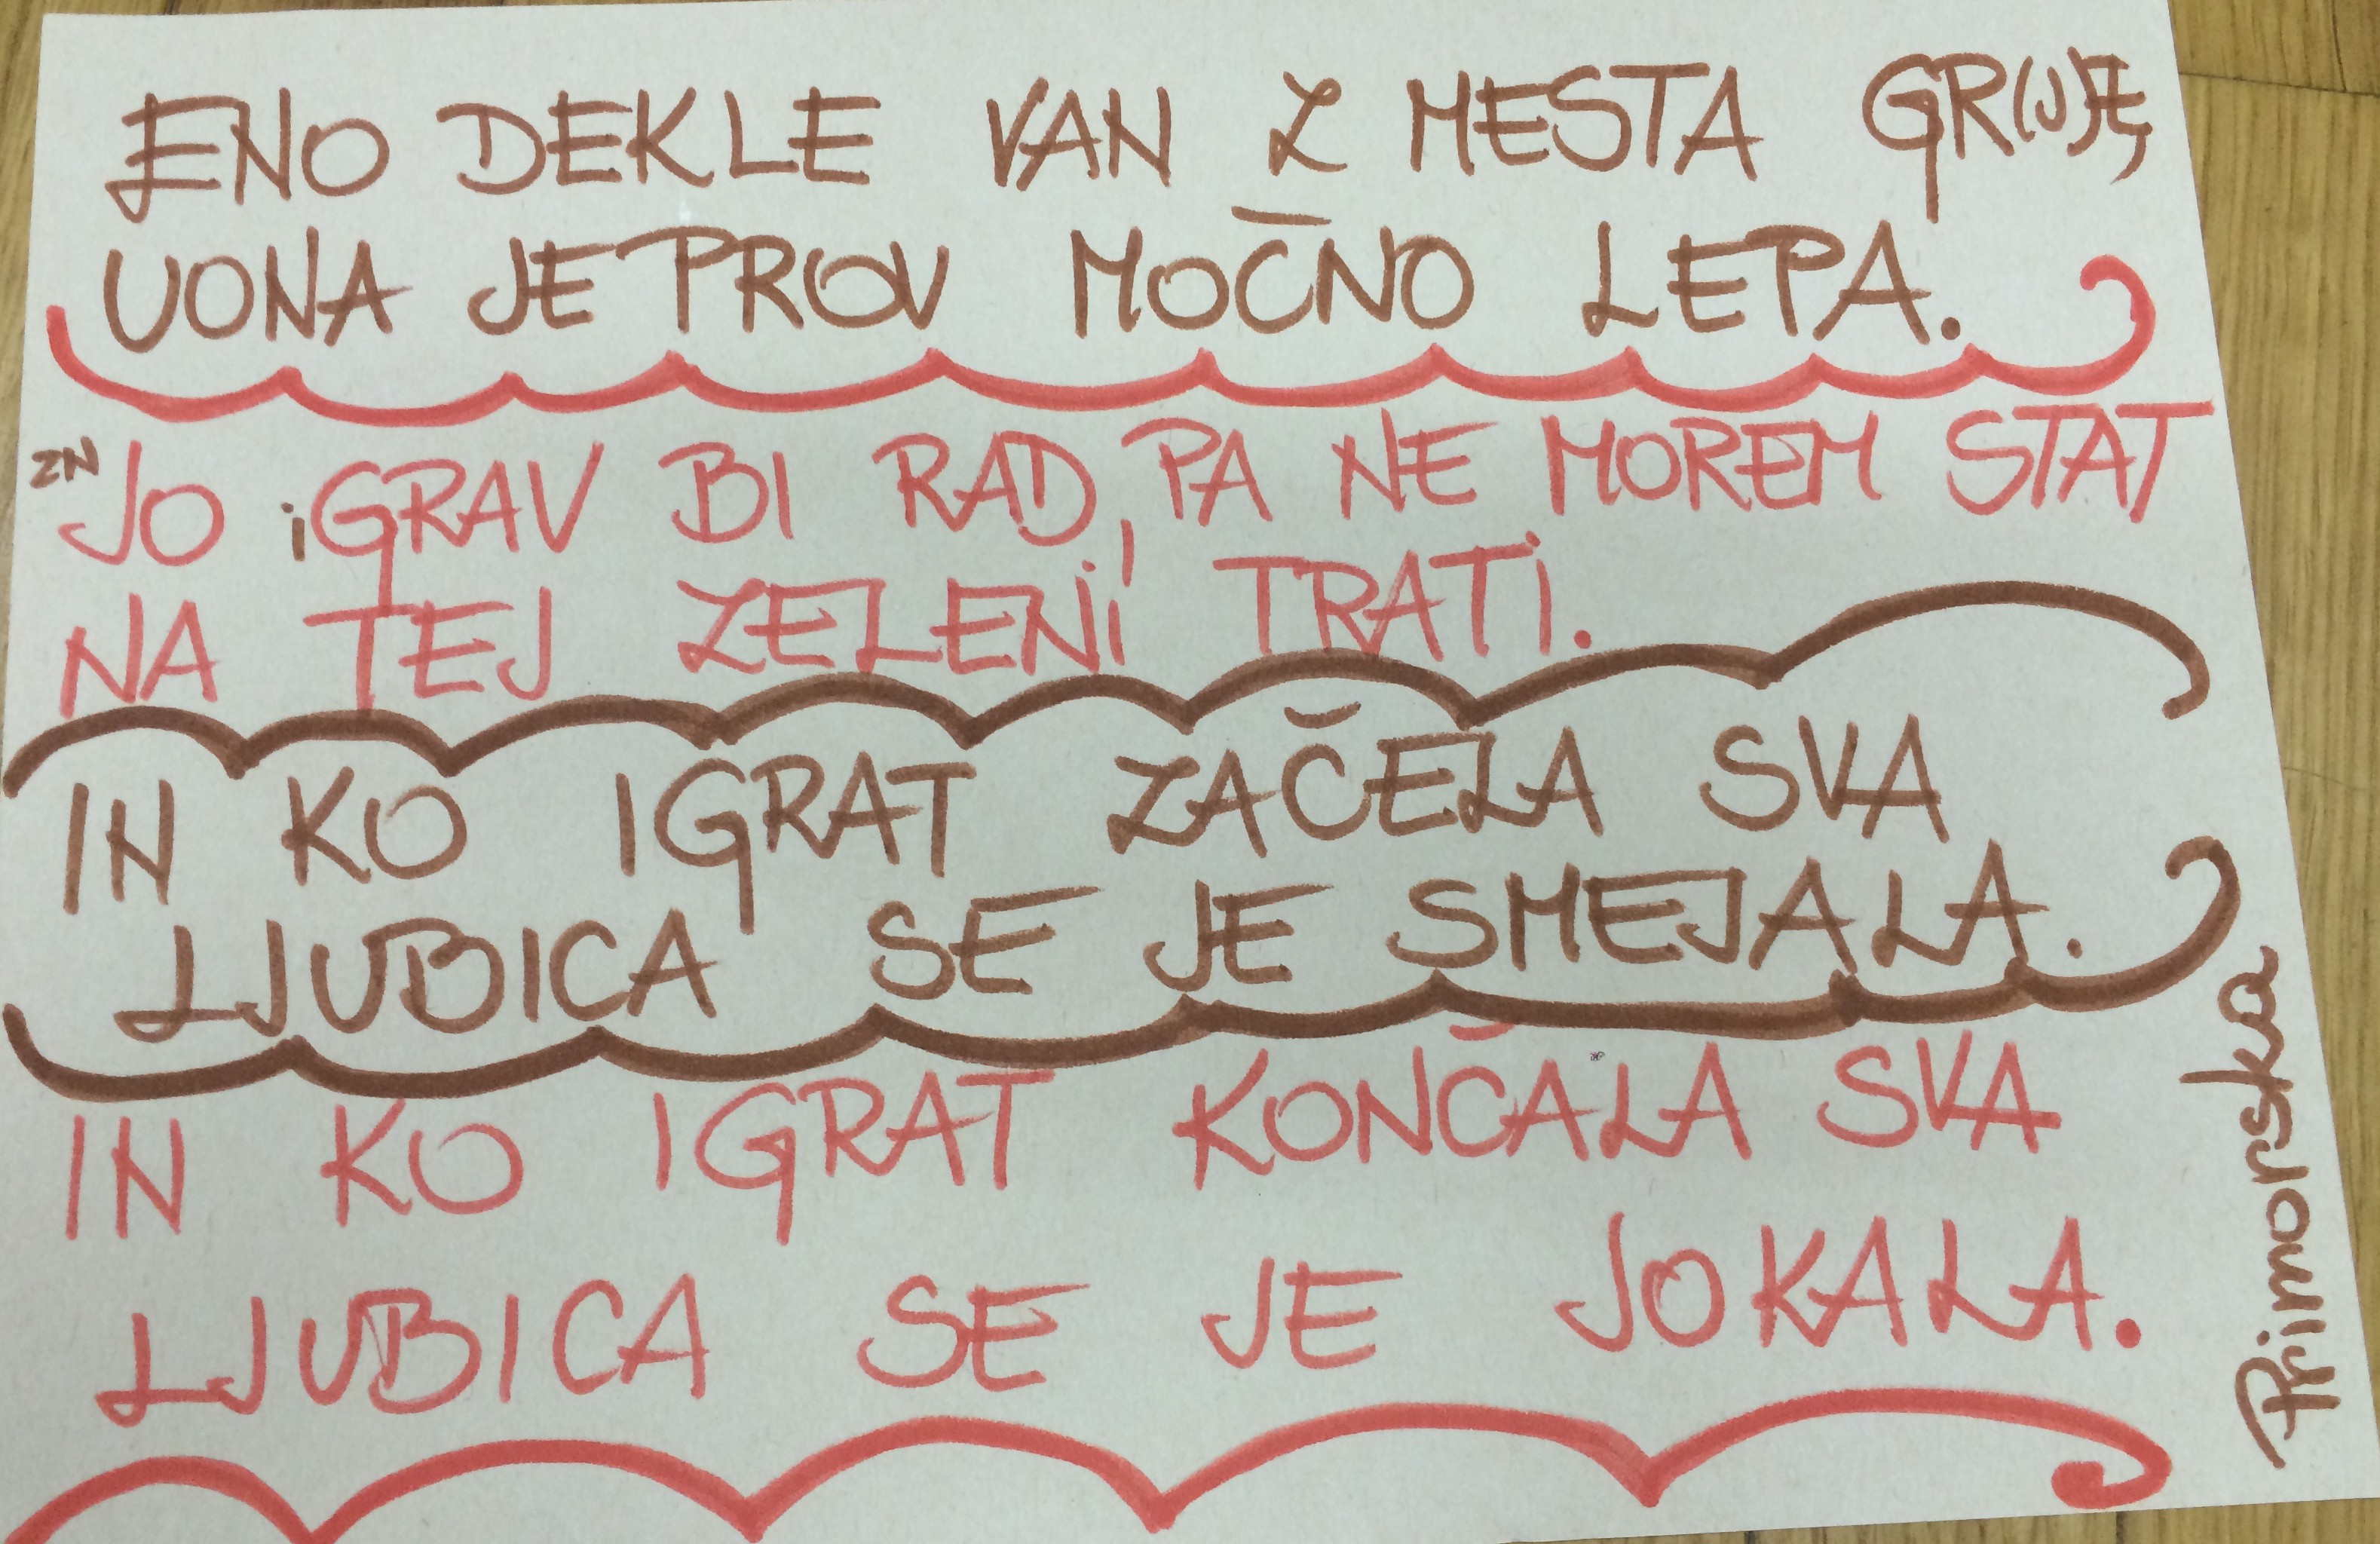 ENO DEKLE VAN Z MESTA GR(J)E,
UONA JE PROV MOČNO LEPA.
ZN JO iGRAV BI RAD, PA NE MOREM STAT
NA TEJ ZELENI TRATI.
IN KO IGRAT ZAČELA SVA
LJUBICA SE JE SMEJALA.
IN KO IGRAT KONČALA SVA
LJUBICA SE JE JOKALA.
Primorska